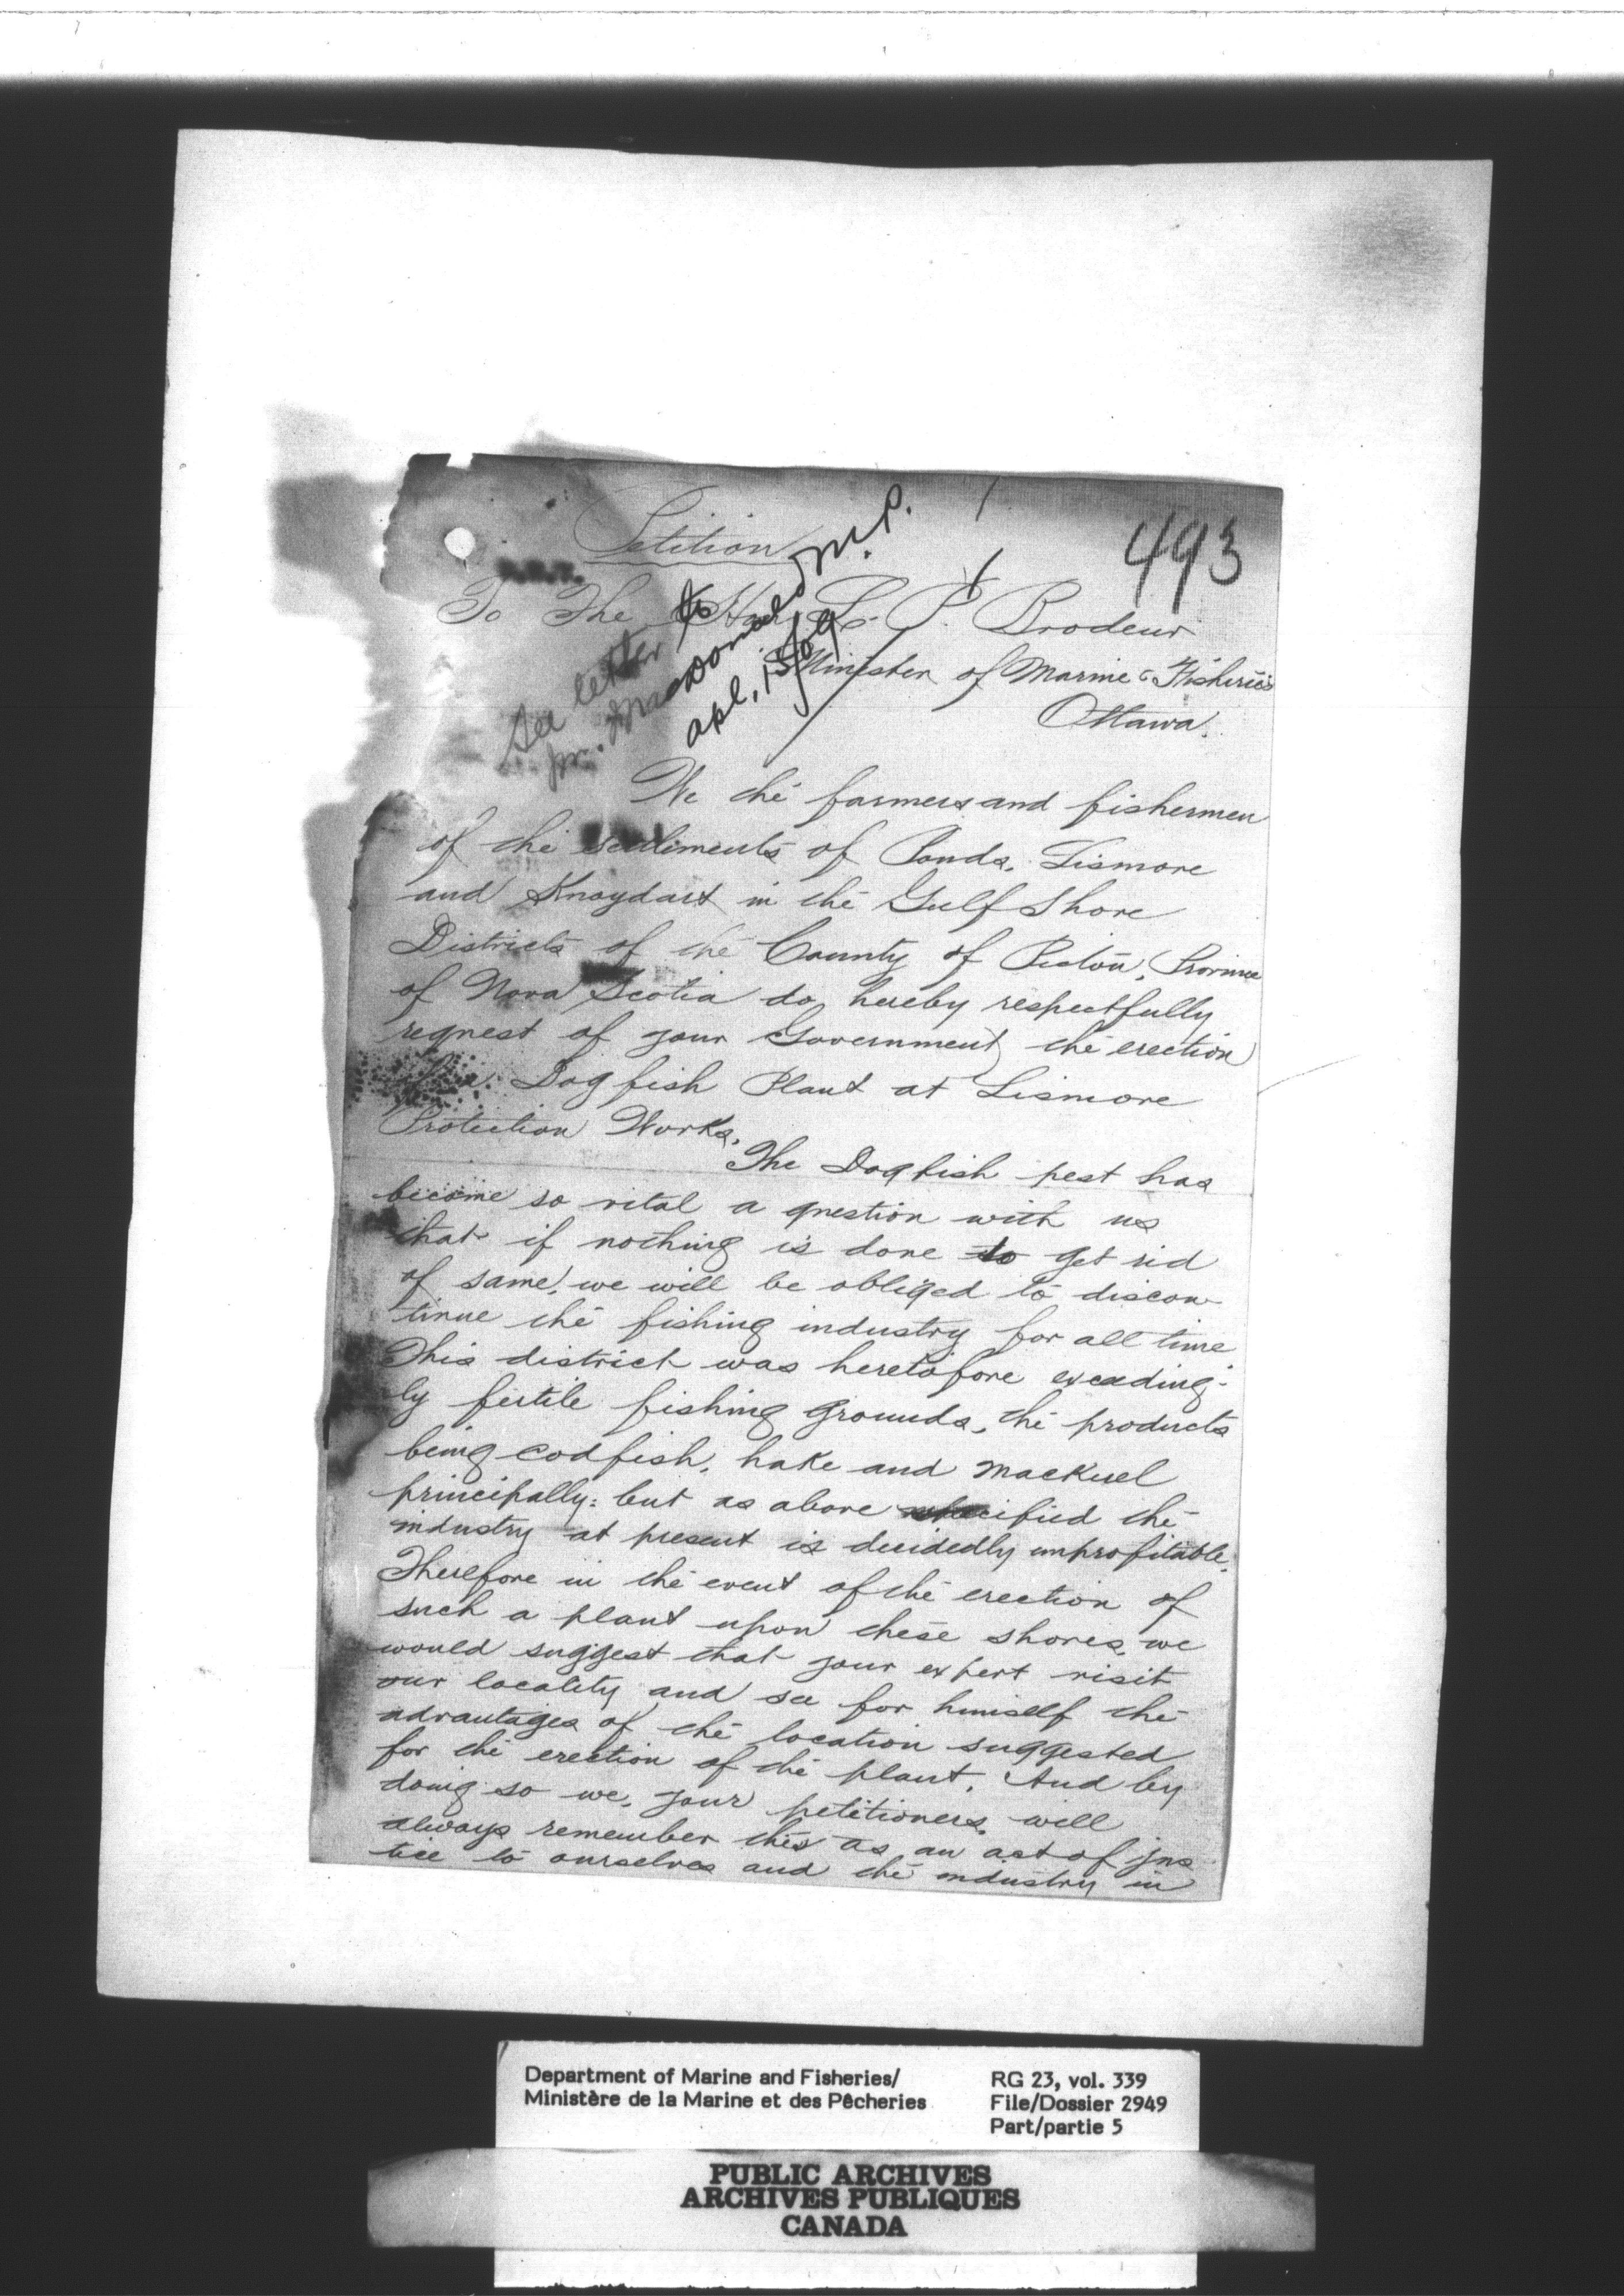 493
Petition
To The Hon. L. P. Brodeur
Minister of Marine & Fisheries
Ottawa.
See letter to
Mr. MacDonald M.P.
apl. 15/09
We the farmers and fishermen
of the settlements of Ponds, Lismore
and Knoydart in the Gulf Shore
Districts of the County of Pictou, Province
of Nova Scotia do hereby respectfully
request of your Government the erection
of a Dogfish Plant at Lismore
Protection Works.
The Dogfish pest has
become so vital a question with us
that if nothing is done to get rid
of same, we will be obliged to discon-
tinue the fishing industry for all time
This district was heretofore exceeding-
ly fertile fishing grounds, the products
being codfish, hake and mackerel
principally: but as above specified the
industry at present is decidedly unprofitable.
Therefore in the event of the erection of
such a plant upon these shores, we
would suggest that your expert visit
our locality and see for himself the
advantages of the location suggested
for the erection of the plant. And by
doing so we, your petitioners, will
always remember this as an act of jus
tice to ourselves and the industry in
Department of Marine and Fisheries/
Ministère de la Marine et des Pêcheries
RG 23, vol. 339
File/Dossier 2949
Part/partie 5
PUBLIC ARCHIVES
ARCHIVES PUBLIQUES
CANADA